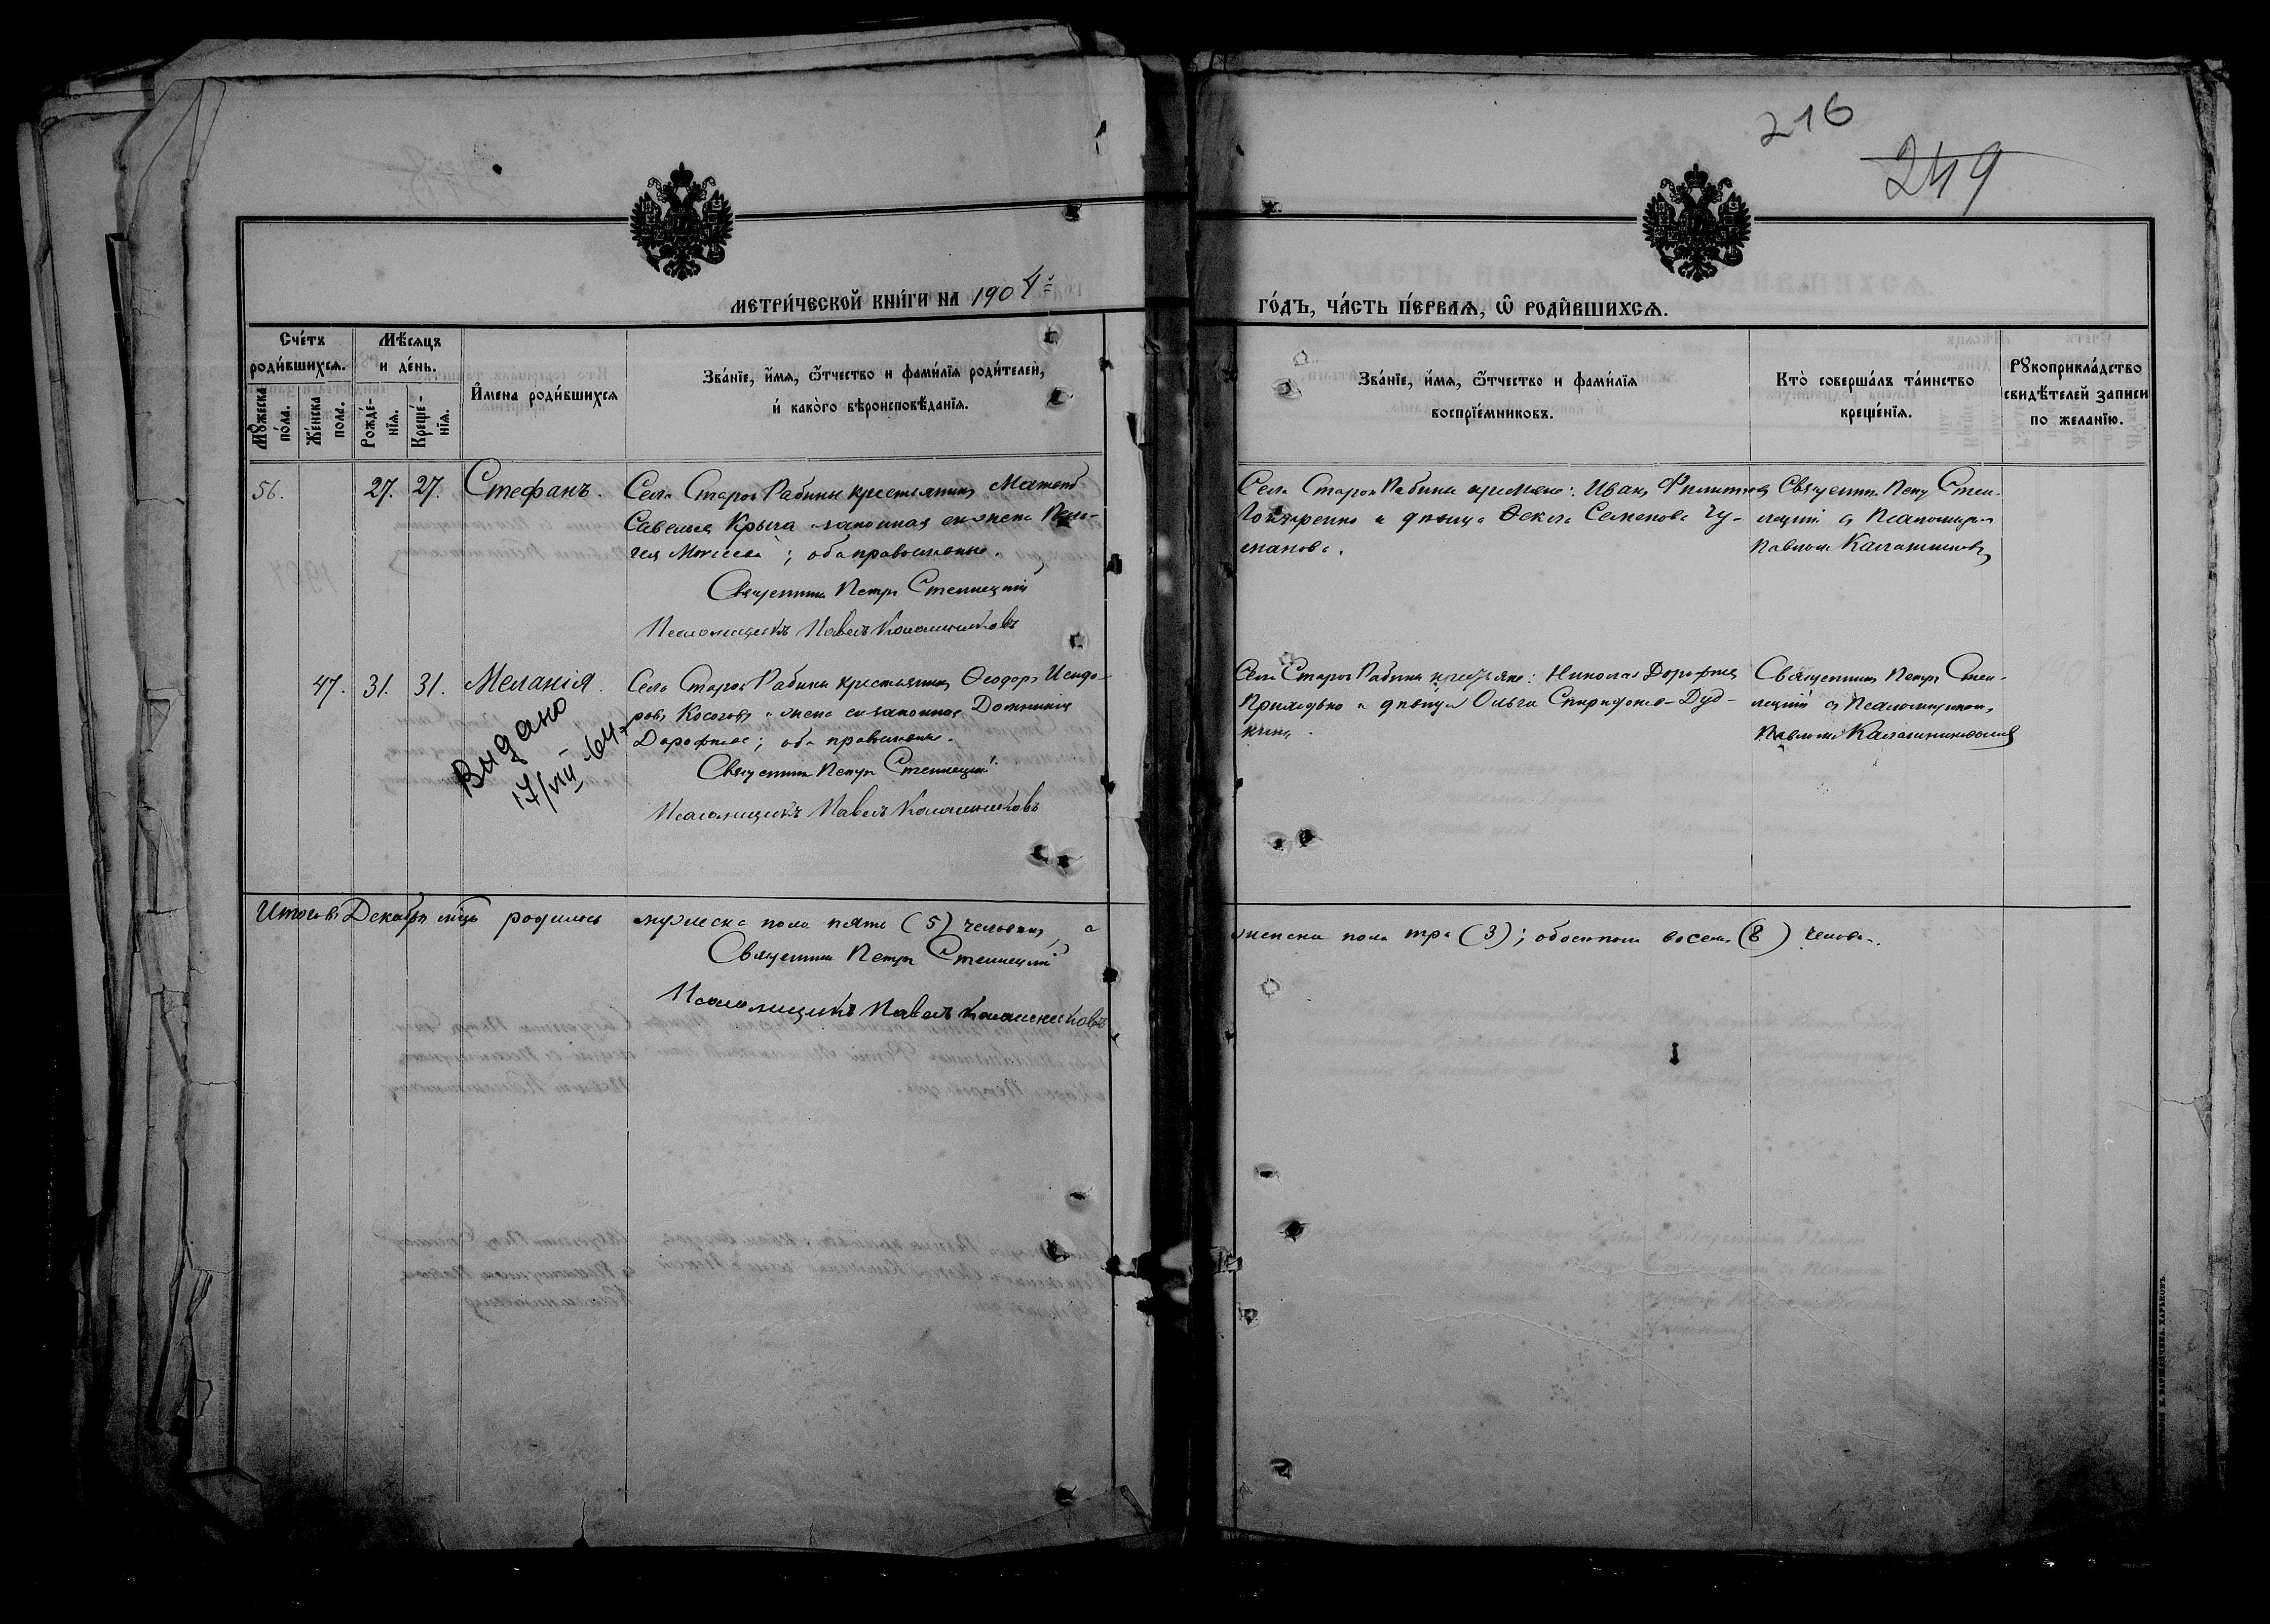 216
249
МЕТРИ́ЧЕСКОЙ КНИ́ГИ НА 1904й
ГО́ДЪ, ЧА́СТЬ ПЕ́РВАЯ, Ѿ РОДИ́ВШИХСЯ.
Сче́тъ роди́вшихся.
Мꙋ́жеска по́ла.
Же́нска пола.
Мѣ́сяцъ и де́нь.
Рожде́нія.
Креще́нія.
И́мена роди́вшихся
Зва́ніе, и́мя, ѻ́тчество и фами́лія роди́телей,
и како́го вѣроисповѣ́данія.
Зва́ніе, и́мя, ѻ́тчество и фами́лія
воспріе́мниковъ.
Кто̀ соверша́лъ та́инство
креще́нія.
Рꙋкоприкла́дство
свидѣ́телей записи
по жела́нію.
56. 27. 27. Стефанъ.
Села Старой Рабины крестьянинъ Матвѣй
Савельевъ Крыга законная его жена
Моисеева; оба православные.
Священникъ Петръ Стеллецкій
Псаломщикъ Павелъ Калашниковъ
Села Старой Рабины крестьяне: Иванъ Филипповъ
Гончаренко и дѣвица Ѳекла Семенова
Священникъ Петръ Стел-
лецкій съ Псаломщикомъ
Павломъ Калашниковымъ
47. 31. 31. Меланія.
Видано
17/VIII 64 г
Села Старой Рабины крестьянинъ Ѳеодоръ Исидо-
ровъ Косоговъ и жена его законная Домникія
Дорофеева; оба православные.
Священникъ Петръ Стеллецкій
Псаломщикъ Павелъ Калашниковъ
Села Старой Рабины крестьяне: Николай Дорофеевъ
Приходько и дѣвица Ольга Спиридонова Дуд-
кина.
Священникъ Петръ Стел-
лецкій съ Псаломщикомъ
Павломъ Калашниковымъ
Итого въ Декабрѣ мцѣ родилось мужеска пола пять (5) человѣкъ, а
женска пола три (3); обоего пола восемь (8) человѣкъ.
Священникъ Петръ Стеллецкій
Псаломщикъ Павелъ Калашниковъ